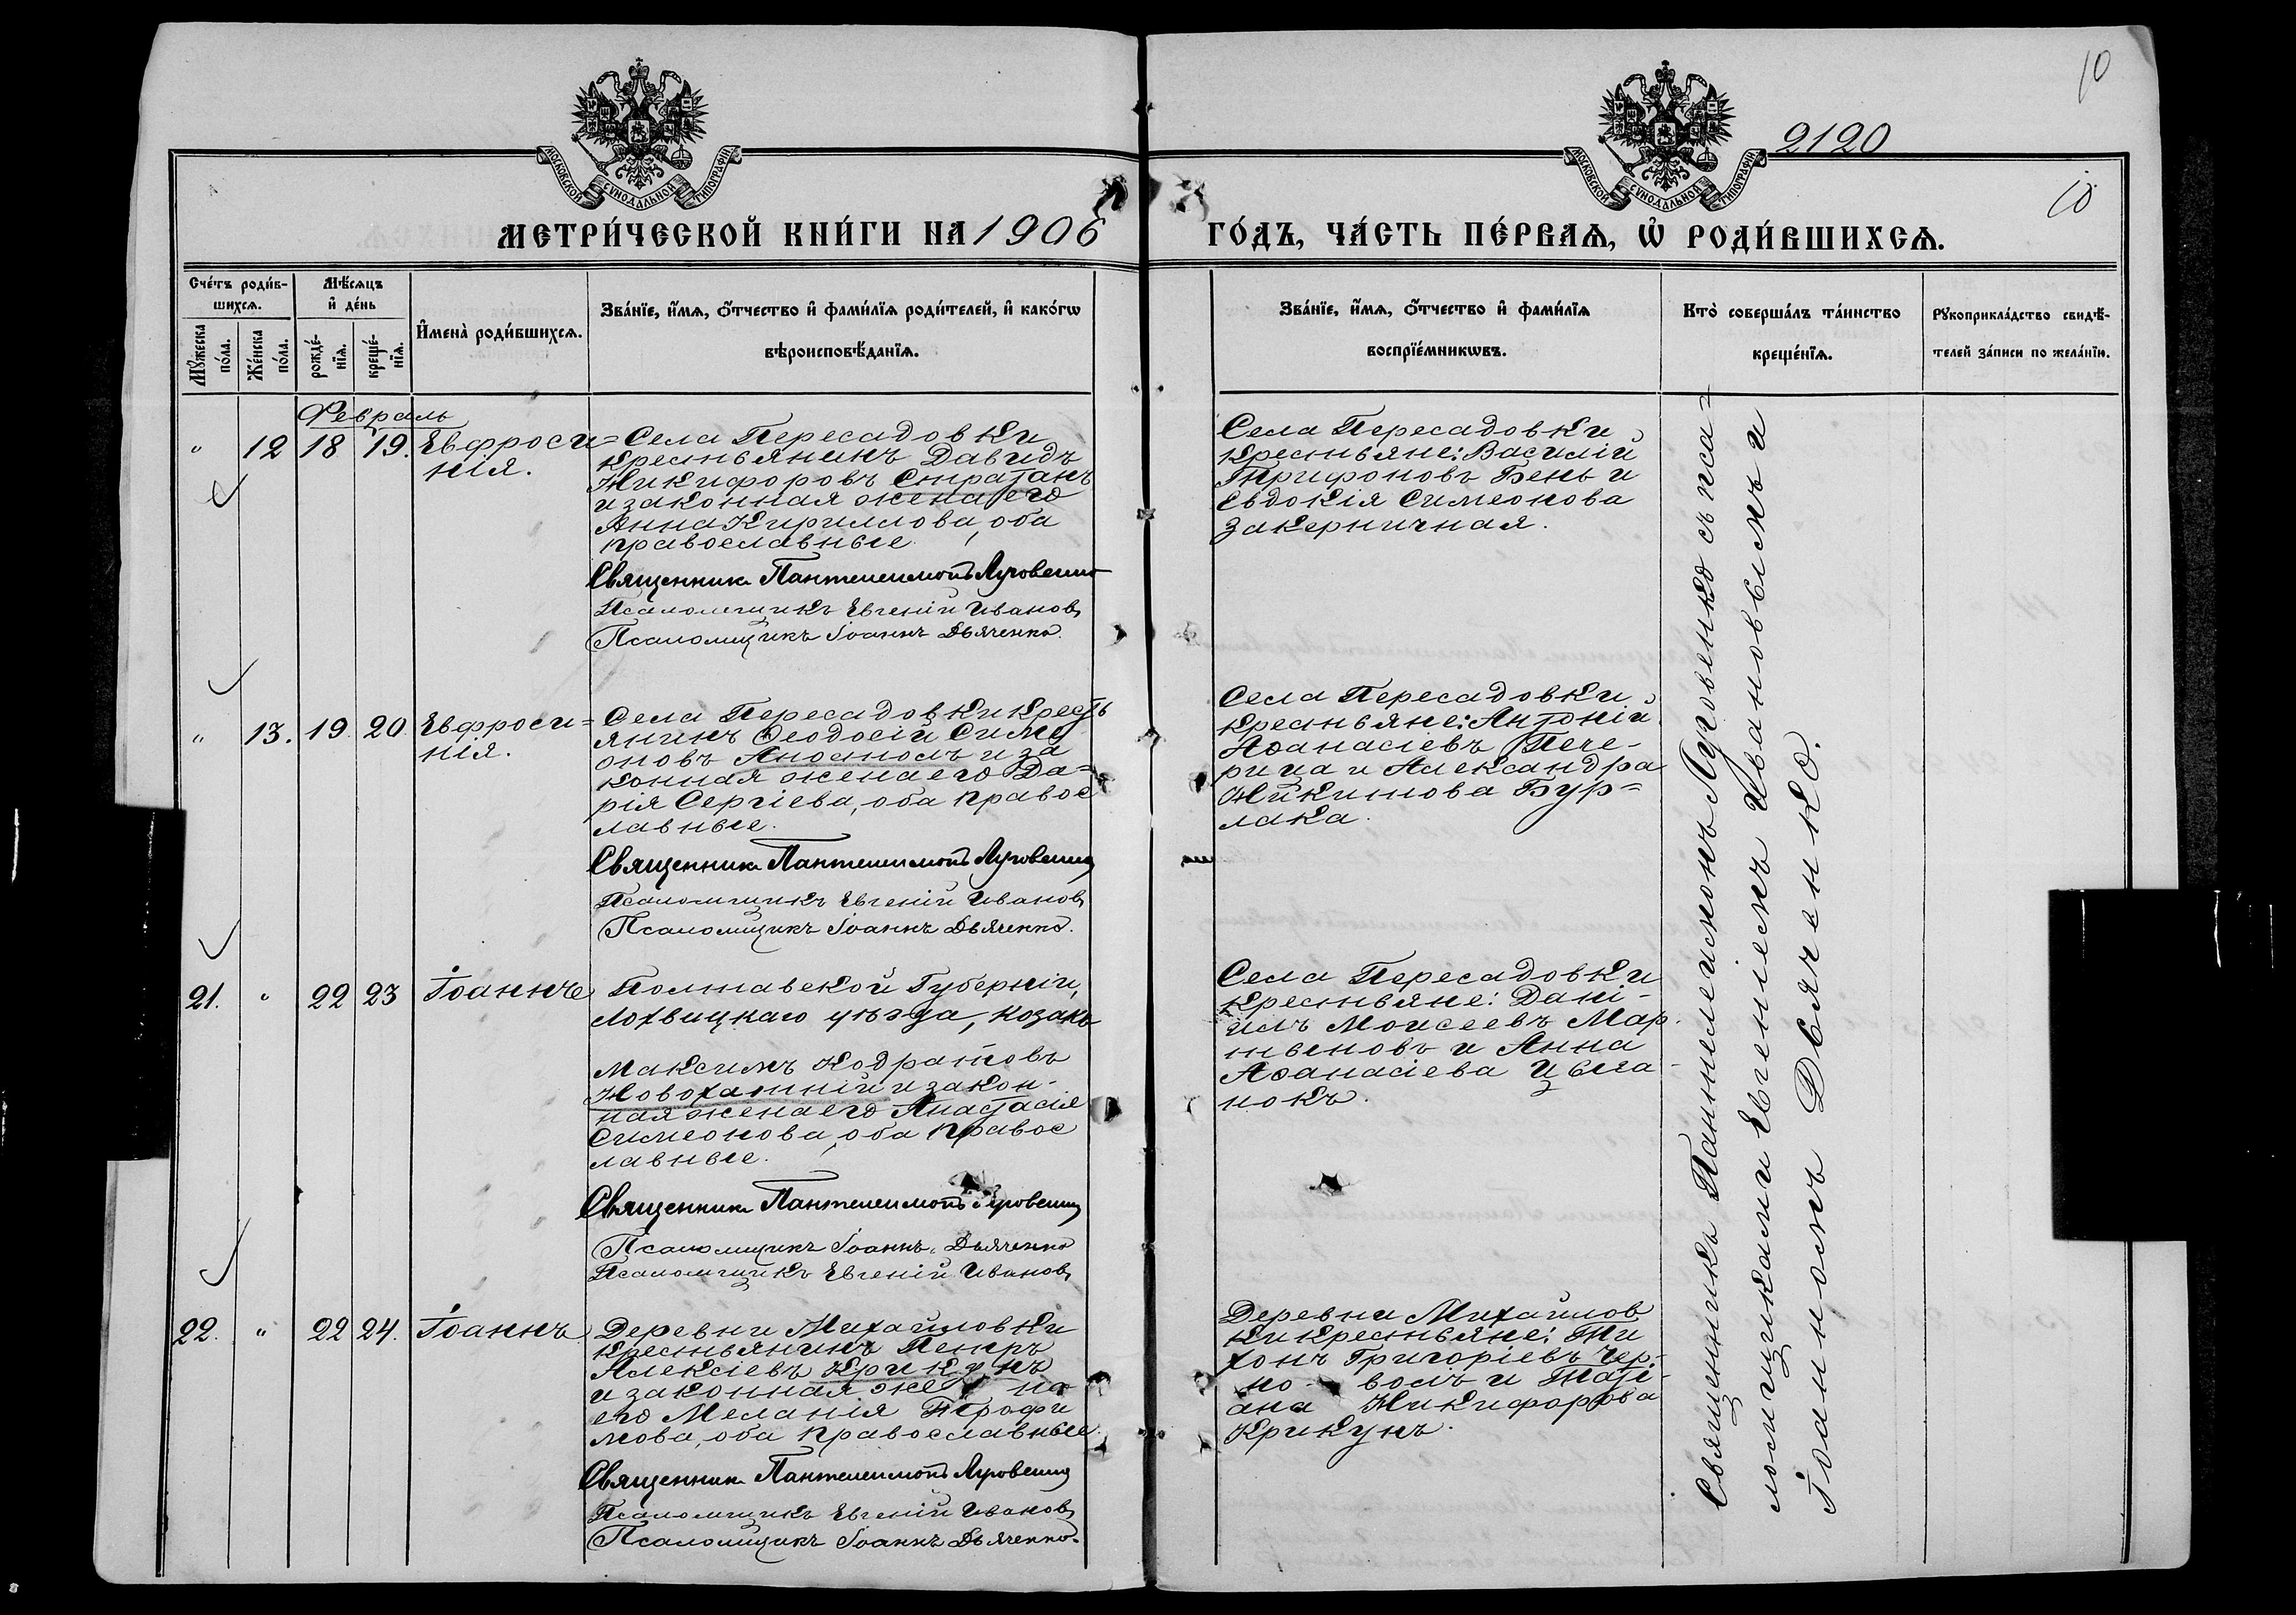 10
2120
10
МОСКОВСКОЙ СѴНОДАЛЬНОЙ ТИПОГРАФІИ
МОСКОВСКОЙ СѴНОДАЛЬНОЙ ТИПОГРАФІИ
МЕТРИ́ЧЕСКОЙ КНИ́ГИ НА 1906
ГО́ДЪ, ЧА́СТЬ ПЕ́РВАѦ, Ѡ҆ РОДИ́ВШИХСѦ.
Сче́тъ роди́в-
шихсѧ.
Мꙋ́жеска
по́ла.
Же́нска
по́ла.
Мѣ́сѧцъ
и҆ де́нь
рожде́-
нїѧ.
креще́-
нїѧ.
И҆мена̀ роди́вшихсѧ.
Зва́нїе, и҆́мѧ, ѻ҆́тчество и҆ фами́лїѧ роди́телей, и҆ како́гѡ
вѣроисповѣ́данїѧ.
Зва́нїе, и҆́мѧ, ѻ҆́тчество и҆ фами́лїѧ
воспрїе́мникѡвъ.
Кто̀ соверша́лъ та́инство
креще́нїѧ.
Рꙋкоприкла́дство свидѣ́-
телей за́писи по жела́нїю.
Февраль
" 12 18 19. Евфроси=
нія.
Села Пересадовки
крестьянинъ Давидъ
Никифоровъ Стратанъ
и законная жена его
Анна Кириллова, оба
православные.
Священникъ Пантелеимонъ Луговенко
Псаломщикъ Евгеній Ивановъ
Псаломщикъ Іоаннъ Дьяченко.
Села Пересадовки
крестьяне: Василій
Трифоновъ Бень и
Евдокія Симеонова
Закерничная.
" 13. 19. 20 Евфроси=
нія.
Села Пересадовки кресть
янинъ Ѳеодосій Симе
оновъ и за
конная жена его Да=
рія Сергіева, оба правос
лавные.
Священникъ Пантелеимонъ Луговенко
Псаломщикъ Евгеній Ивановъ
Псаломщикъ Іоаннъ Дьяченко.
Села Пересадовки
крестьяне: Антоній
Аѳанасіевъ Пече-
рица и Александра
Никитова Бур=
лака.
21. " 22 23 Іоаннъ
Полтавской Губерніи,
Лохвицкаго уѣзда, козакъ
Максимъ Кодратовъ
Новохатній и закон-
ная жена его Анастасія
Симеонова, оба правос
лавные.
Священникъ Пантелеимонъ Луговенко
Псаломщикъ Іоаннъ Дьяченко
Псаломщикъ Евгеній Ивановъ
Села Пересадовки
крестьяне: Дані-
илъ Моисеевъ Мар-
тыновъ и Анна
Аѳанасіева Цыга-
нокъ.
22. " 22 24. Іоаннъ
Деревни Михайловки
крестьянинъ Петръ
Алексіевъ Крикунъ
и законная жена
его Меланія Трофи
мова, оба православные.
Священникъ Пантелеимонъ Луговенко
Псаломщикъ Евгеній Ивановъ
Псаломщикъ Іоаннъ Дьяченко.
Деревни Михайлов
ки крестьяне: Ти
хонъ Григоріевъ Чер-
но-волъ и Тати-
ана Никифорова
Крикунъ.
Священникъ Пантелеимонъ Луговенко съ пса=
ломщиками Евгеніемъ Ивановымъ и
Іоанномъ Дьяченко.